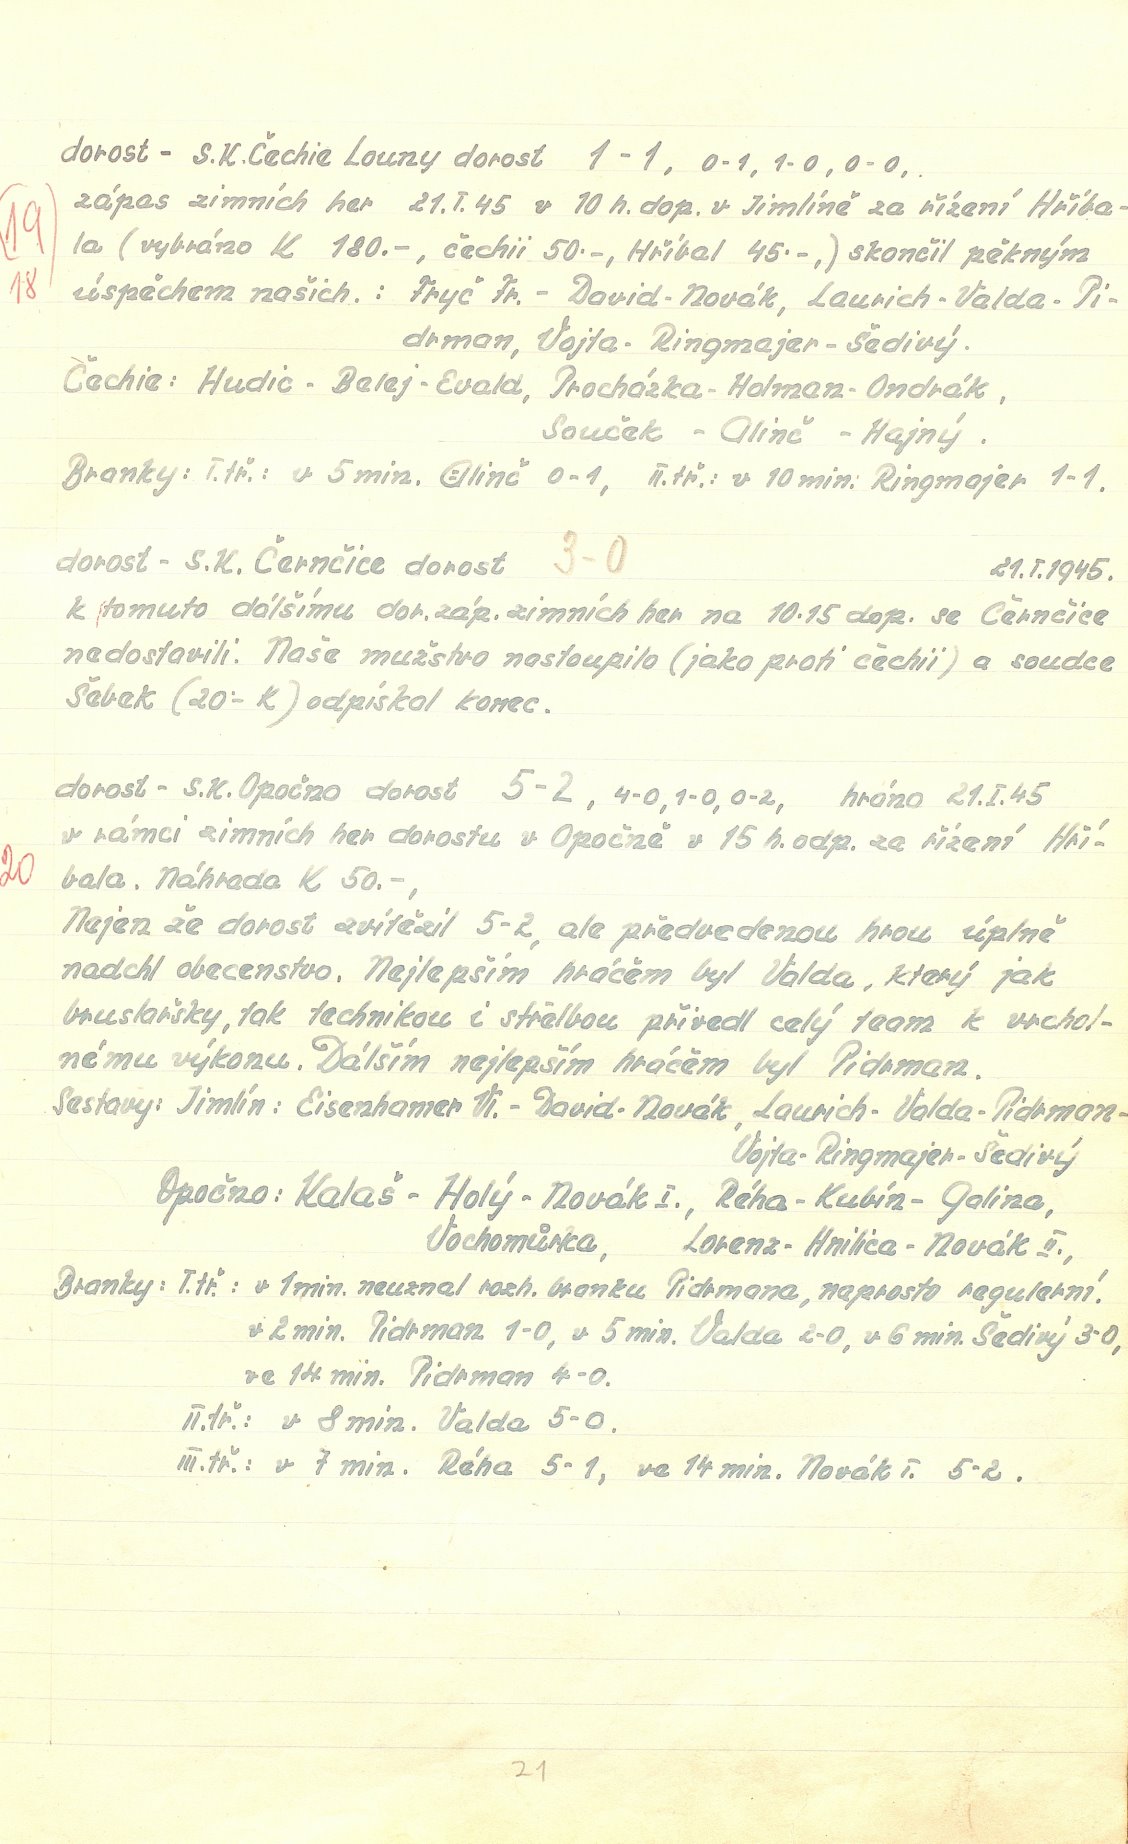 dorost - S.K. Čechie Louny dorost 1-1, 0-1, 1-0, 0-0,.
19
18
zápas zimních her 21.I.45 v 10 h. dop. v Jimlíně za řížení Hříba-
la (vybráno K 180.-, čechii 50.-, Hříbal 45.-,) skončil pěkným
úspěchem našich.: Fryč Fr. - David - Novák, Laurich - Valda - Pi-
drman, Vojta - Ringmajer - Šedivý.
Čechie: Hudic - Belej - Evald, Procházka - Holman - Ondrák,
Souček - Glinč - Hajný.
Branky: I.tř.: v 5 min. Glinč 0-1, II.tř.: v 10 min. Ringmajer 1-1.
dorost - S.K. Černčice dorost 3-0 21.I.1945.
k tomuto dálšímu dor. záp. zimních her na 10.15 dop. se Černčice
nedostavili. Naše mužstvo nastoupilo (jako proti čechii) a soudce
Šebek (20.- K) odpískal konec.
dorost - S.K. Opočno dorost 5-2, 4-0, 1-0, 0-2, hráno 21.I.45
v rámci zimních her dorostu v Opočně v 15 h. odp. za řížení Hří-
20
bala. Náhrada K 50.-,
Nejen že dorost zvítězil 5-2, ale předvedenou hrou úplně
nadchl obecenstvo. Nejlepším hráčem byl Valda, který jak
bruslařsky, tak technikou i střelbou přivedl celý team k vrchol-
nému výkonu. Dálším nejlepším hráčem byl Pidrman.
Sestavy: Jimlín: Eisenhamer Vl. - David - Novák, Laurich - Valda - Pidrman -
Vojta - Ringmajer - Šedivý
Opočno: Kalaš - Holý - Novák I., Réha - Kubín - Galina,
Vochomůrka, Lorenz - Hnilica - Novák II.,
Branky: I.tř.: v 1 min. neuznal rozh. branku Pidrmana, naprosto regulerní.
v 2 min. Pidrman 1-0, v 5 min. Valda 2-0, v 6 min. Šedivý 3-0,
ve 14 min. Pidrman 4-0.
II.tř.: v 8 min. Valda 5-0.
III.tř.: v 7 min. Réha 5-1, ve 14 min. Novák I. 5-2.
21